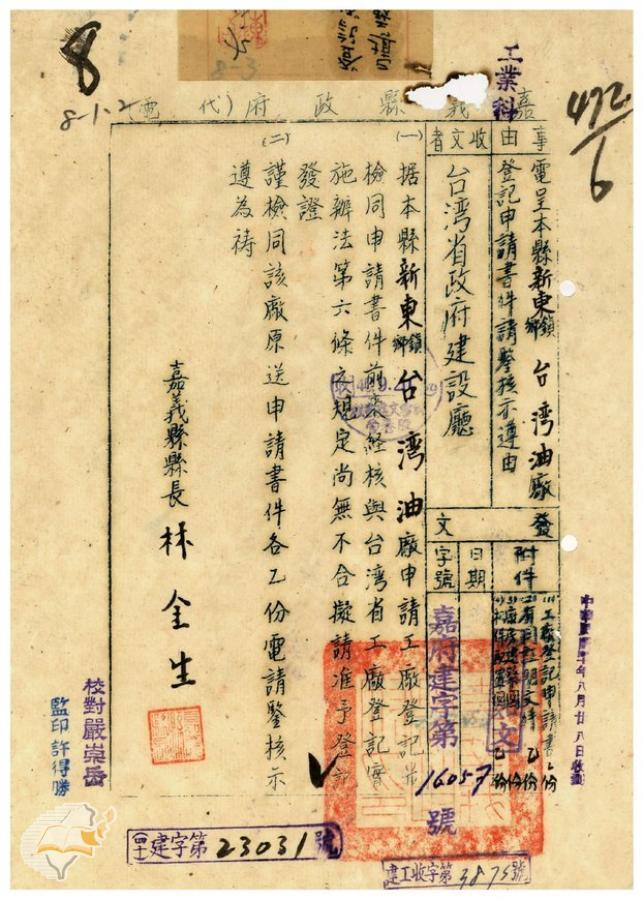 8
8-3
8-1-2
工業科
472/6
嘉義縣政府(代電)
事由
電呈本縣新東鄉鎮台湾油廠
登記申請書件請鑒核示遵由
收文者
台湾省政府建設廳
發文
附件
(一)工廠登記申請書乙份
乙份
乙份
乙份
日期
字號
嘉府建字第
16057
號
(一)据本縣新東鄉鎮台湾油廠申請工廠登記并
檢同申請書件前來經核與台湾省工廠登記實
施辦法第六條之規定尚無不合擬請准予登記
發證
(二)謹檢同該廠原送申請書件各乙份電請鑒核示
遵為禱
嘉義縣縣長 林金生
校對嚴崇岳
監印許得勝
建字第23031號
建工收字第3875號